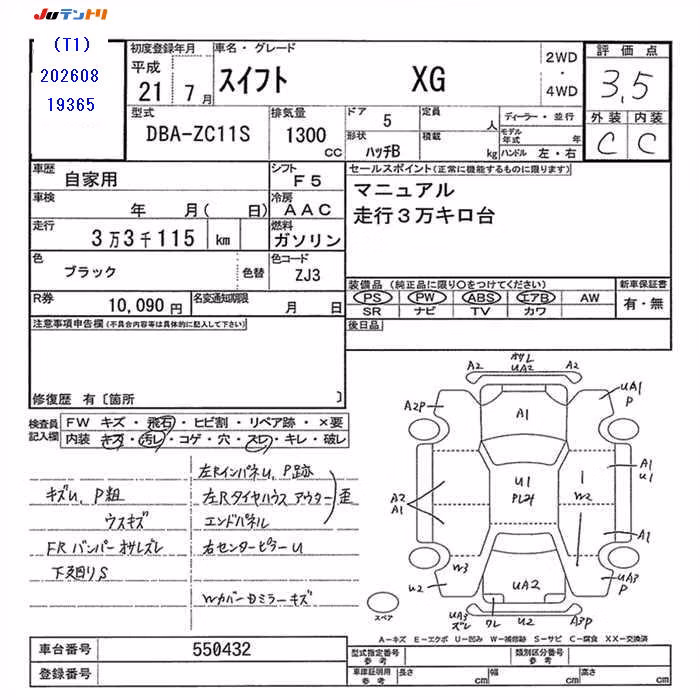 JUテントリ
(T1)
202608
19365
初度登録年月
平成
21 7月
車名・グレード
スイフト XG
2WD
・
4WD
評価点
3,5
外装 内装
C C
型式
DBA-ZC11S
排気量
1300
CC
ドア
5
定員
人
形状
ハッチB
積載
kg
ディーラー・並行
モデル年式 年
ハンドル 左・右
車歴
自家用
シフト
F5
車検
年 月( 日)
冷房
AAC
走行
3万3千115 km
燃料
ガソリン
色
ブラック
色替
色コード
ZJ3
R券
10,090円
名変通知期限
月 日
セールスポイント(正常に機能するものに限ります)
マニュアル
走行3万キロ台
装備品(純正品に限り○をつけてください)
PS PW ABS エアB AW
SR ナビ TV カワ
新車保証書
有・無
後日品
注意事項申告欄(不具合内容等は具体的に記入して下さい)
修復歴 有〔箇所 〕
検査員記入欄
FW キズ・飛石・ヒビ割・リペア跡・×要
内装 キズ・汚レ・コゲ・穴・スレ・キレ・破レ
キズU、P粗
ウスキズ
FRバンパーオサレズレ
下廻りS
左RインパネU、P跡
左Rタイヤハウスアウター
エンドパネル
歪
右センターピラーU
WカバーDミラーキズ
A2 オサレ UA2 A2
A2P
A1
UA1
P
U1
A2
A1
A1
U1
W2
A1
W3
U2
UA2
UA3
P
UA3
ズレ
ワレ
U2
A3P
スペア
A-キズ E-エクボ U-凹み W-補修跡 S-サビ C-腐食 XX-交換済
車台番号
550432
登録番号
型式指定番号
参考
類別区分番号
参考
車庫証明用
参考
長さ cm 幅 cm 高さ cm